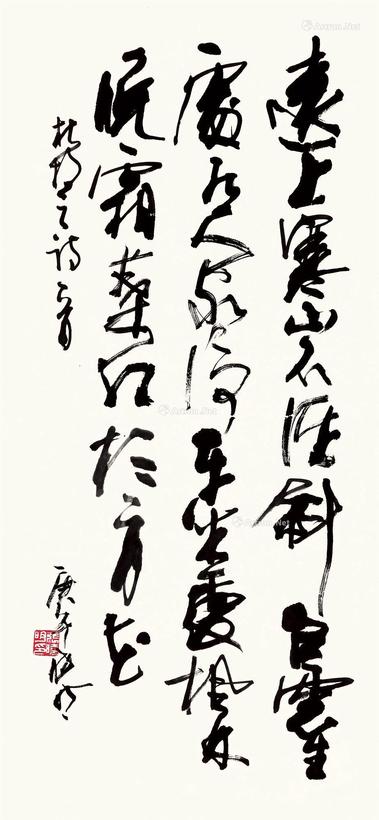 遠上寒山石徑斜白雲生
處有人家停車坐愛楓林
晚霜葉紅於二月花
杜牧之詩一首
庚午
Artron.Net
Artron.Net
Artron.Net